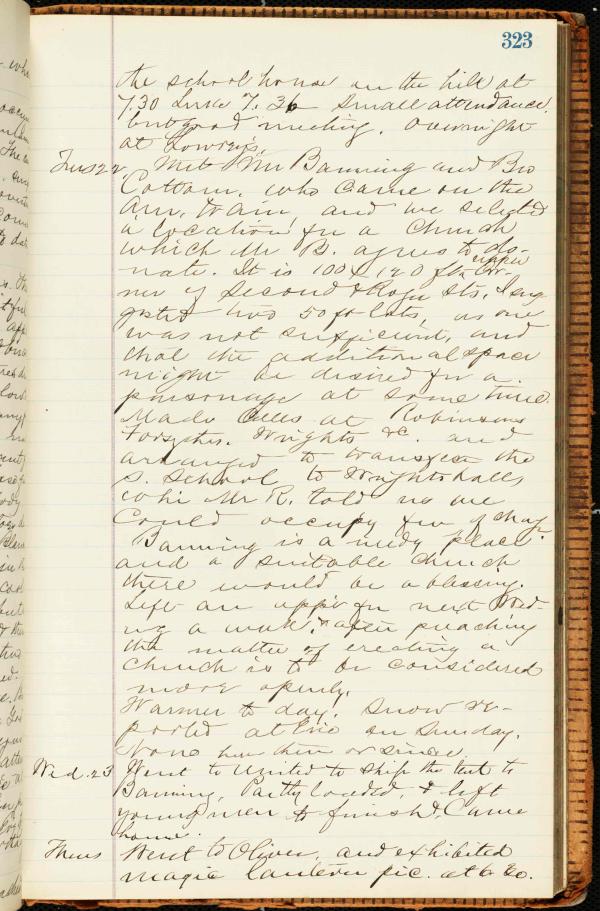 323
the school house on the hill at
7.30 Luke 7. 36 Small attendance.
but good meeting. Overnight
at Lowry's.
Tues 22, Met Mr Banning and Bro
Cottom, who came on the
Am. train, and we selected
a location for a Church
which Mr B. agres to do-
nate. It is 100 X 120 ft. upper Cor-
ner of Second & Sts. I sug
gested two 50 ft lots, as one
was not sufficient, and
that the additional space
might be desired for a
parsonage at some time.
Made Calls at Robinsons
Forsythes. Wrights &c. and
arranged to transfer the
S. School to Wrights halls
whi Mr R. told us we
Could occupy free of charge.
Banning is a needy place
and a suitable Church
there would be a blessing.
Left an app't for next Wed-
a week. & after preaching
the matter of erecting a
Church is to be considered
more openly.
Warmer to day. Snow re-
ported at on Sunday.
None here then or since.
Wed. 23 Went to United to ship the tent to
Banning, Partly loaded, & left
young men to finish & Came
home.
Thurs Went to Oliver, and exhibited
magic lantern pic. at Co.